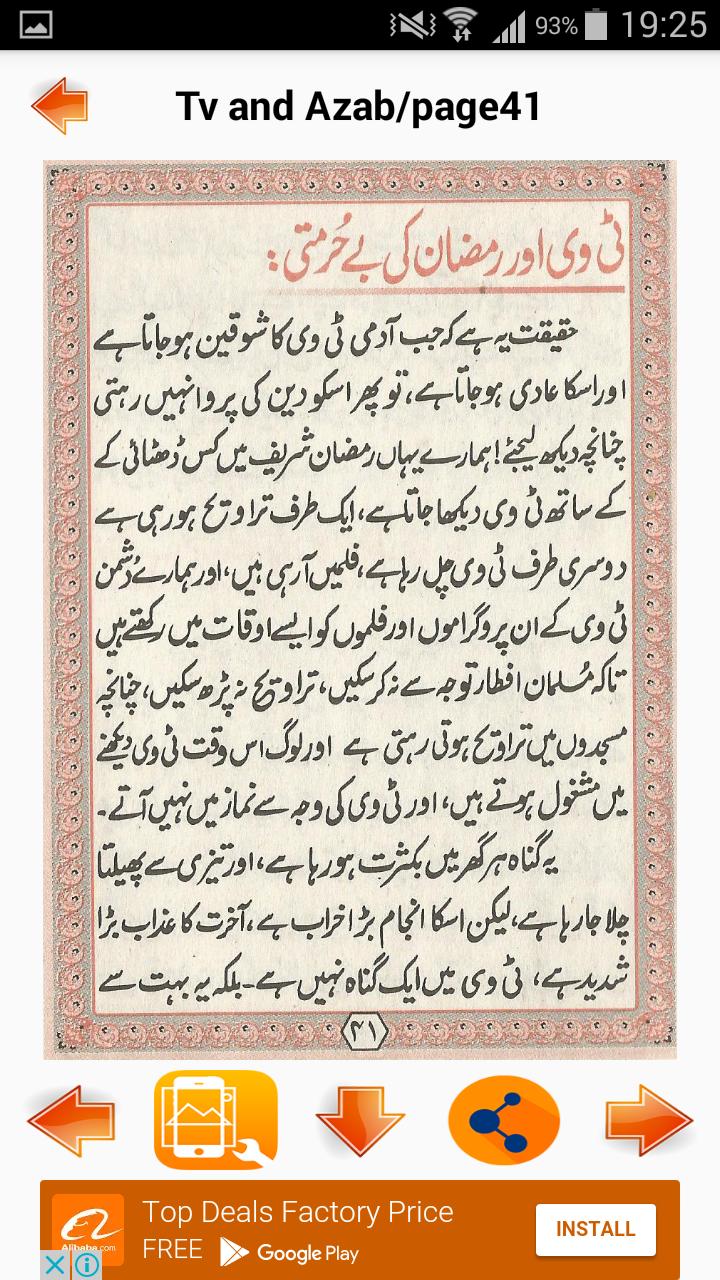 93% 19:25
Tv and Azab/page41
ٹی وی اور رمضان کی بے حُرمتی:
حقیقت یہ ہے کہ جب آدمی ٹی وی کا شوقین ہو جاتا ہے
اور اسکا عادی ہو جاتا ہے، تو پھر اسکو دین کی پروا نہیں رہتی
چنانچہ دیکھ لیجئے! ہمارے یہاں رمضان شریف میں کس ڈھٹائی کے
کے ساتھ ٹی وی دیکھا جاتا ہے، ایک طرف تراویح ہو رہی ہے
دوسری طرف ٹی وی چل رہا ہے، فلمیں آرہی ہیں، اور ہمارے دُشمن
ٹی وی کے ان پروگراموں اور فلموں کو ایسے اوقات میں رکھتے ہیں
تاکہ مُسلمان افطار توجہ سے نہ کر سکیں، تراویح نہ پڑھ سکیں، چنانچہ
مسجدوں میں تراویح ہوتی رہتی ہے اور لوگ اس وقت ٹی وی دیکھنے
میں مشغول ہوتے ہیں، اور ٹی وی کی وجہ سے نماز میں نہیں آتے۔
یہ گناہ ہر گھر میں بکثرت ہو رہا ہے، اور تیزی سے پھیلتا
چلا جا رہا ہے، لیکن اسکا انجام بڑا خراب ہے، آخرت کا عذاب بڑا
شدید ہے، ٹی وی میں ایک گناہ نہیں ہے۔ بلکہ یہ بہت سے
۴۱
Top Deals Factory Price
FREE Google Play
INSTALL
Alibaba.com